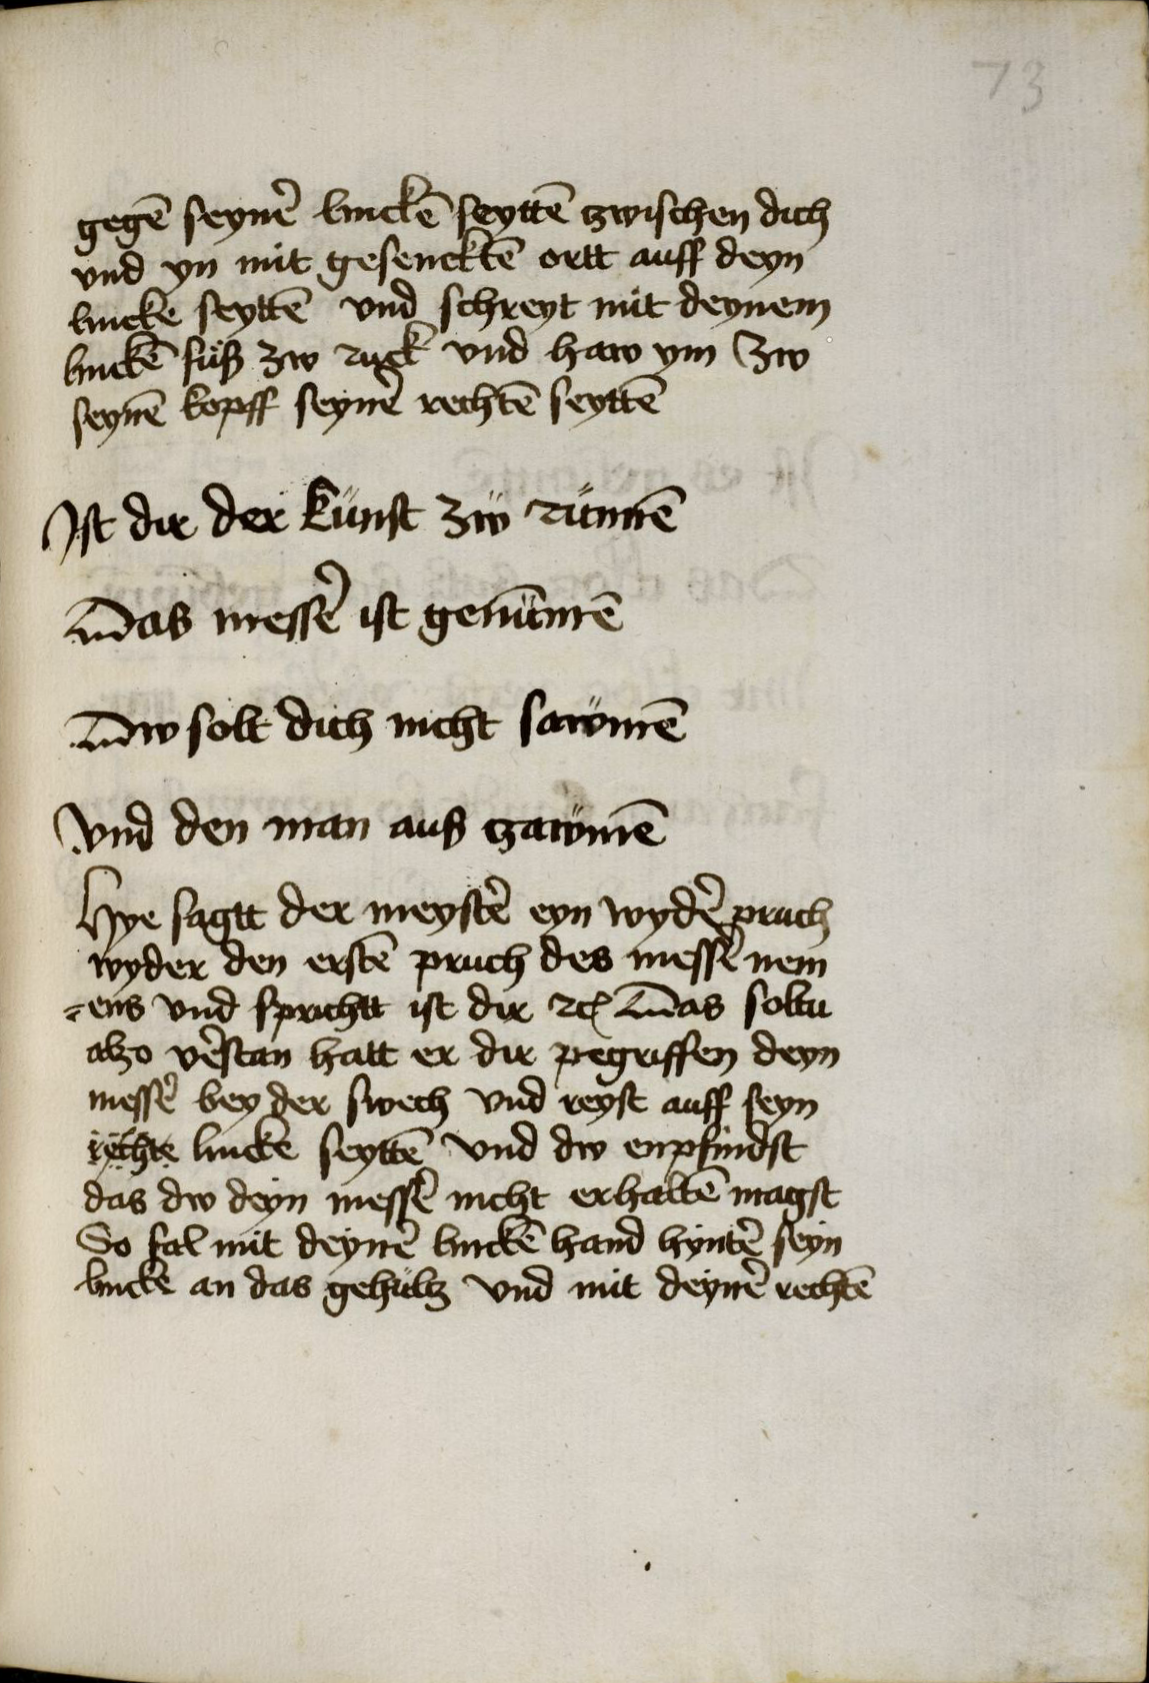 73
gegē seyn̄ linckē seyttē zwischen dich
vnd yn mit gesencktē ortt auff deyn
lincke seyttē vnd schreyt mit deynem
linckē fuß zw ruck vnd haw ym zw
seynē kopff seyn̄ rechtē seyttē
Ist dir der künst zw rümmē
Das mess̄ ist genūmē
Dw solt dich nicht sawmē
Vnd den man auß zawmē
Hye sagtt der meyst̄ eyn wyd̄ pruch
wyder den erstē pruch des mess̄ nem
=ens vnd sprichtt ist dir ꝛc̄ Das soltu
alzo v̄stan hatt er dir pegriffen deyn
mess̄ bey der swech vnd reyst auff seyn
rechte lincke seyttē vnd dw enpfindst
das dw deyn mess̄ nicht erhaltē magst
So fal mit deyn̄ linckē hand hynt̄ seyn
lincke an das gehultz vnd mit deyn̄ rechtē